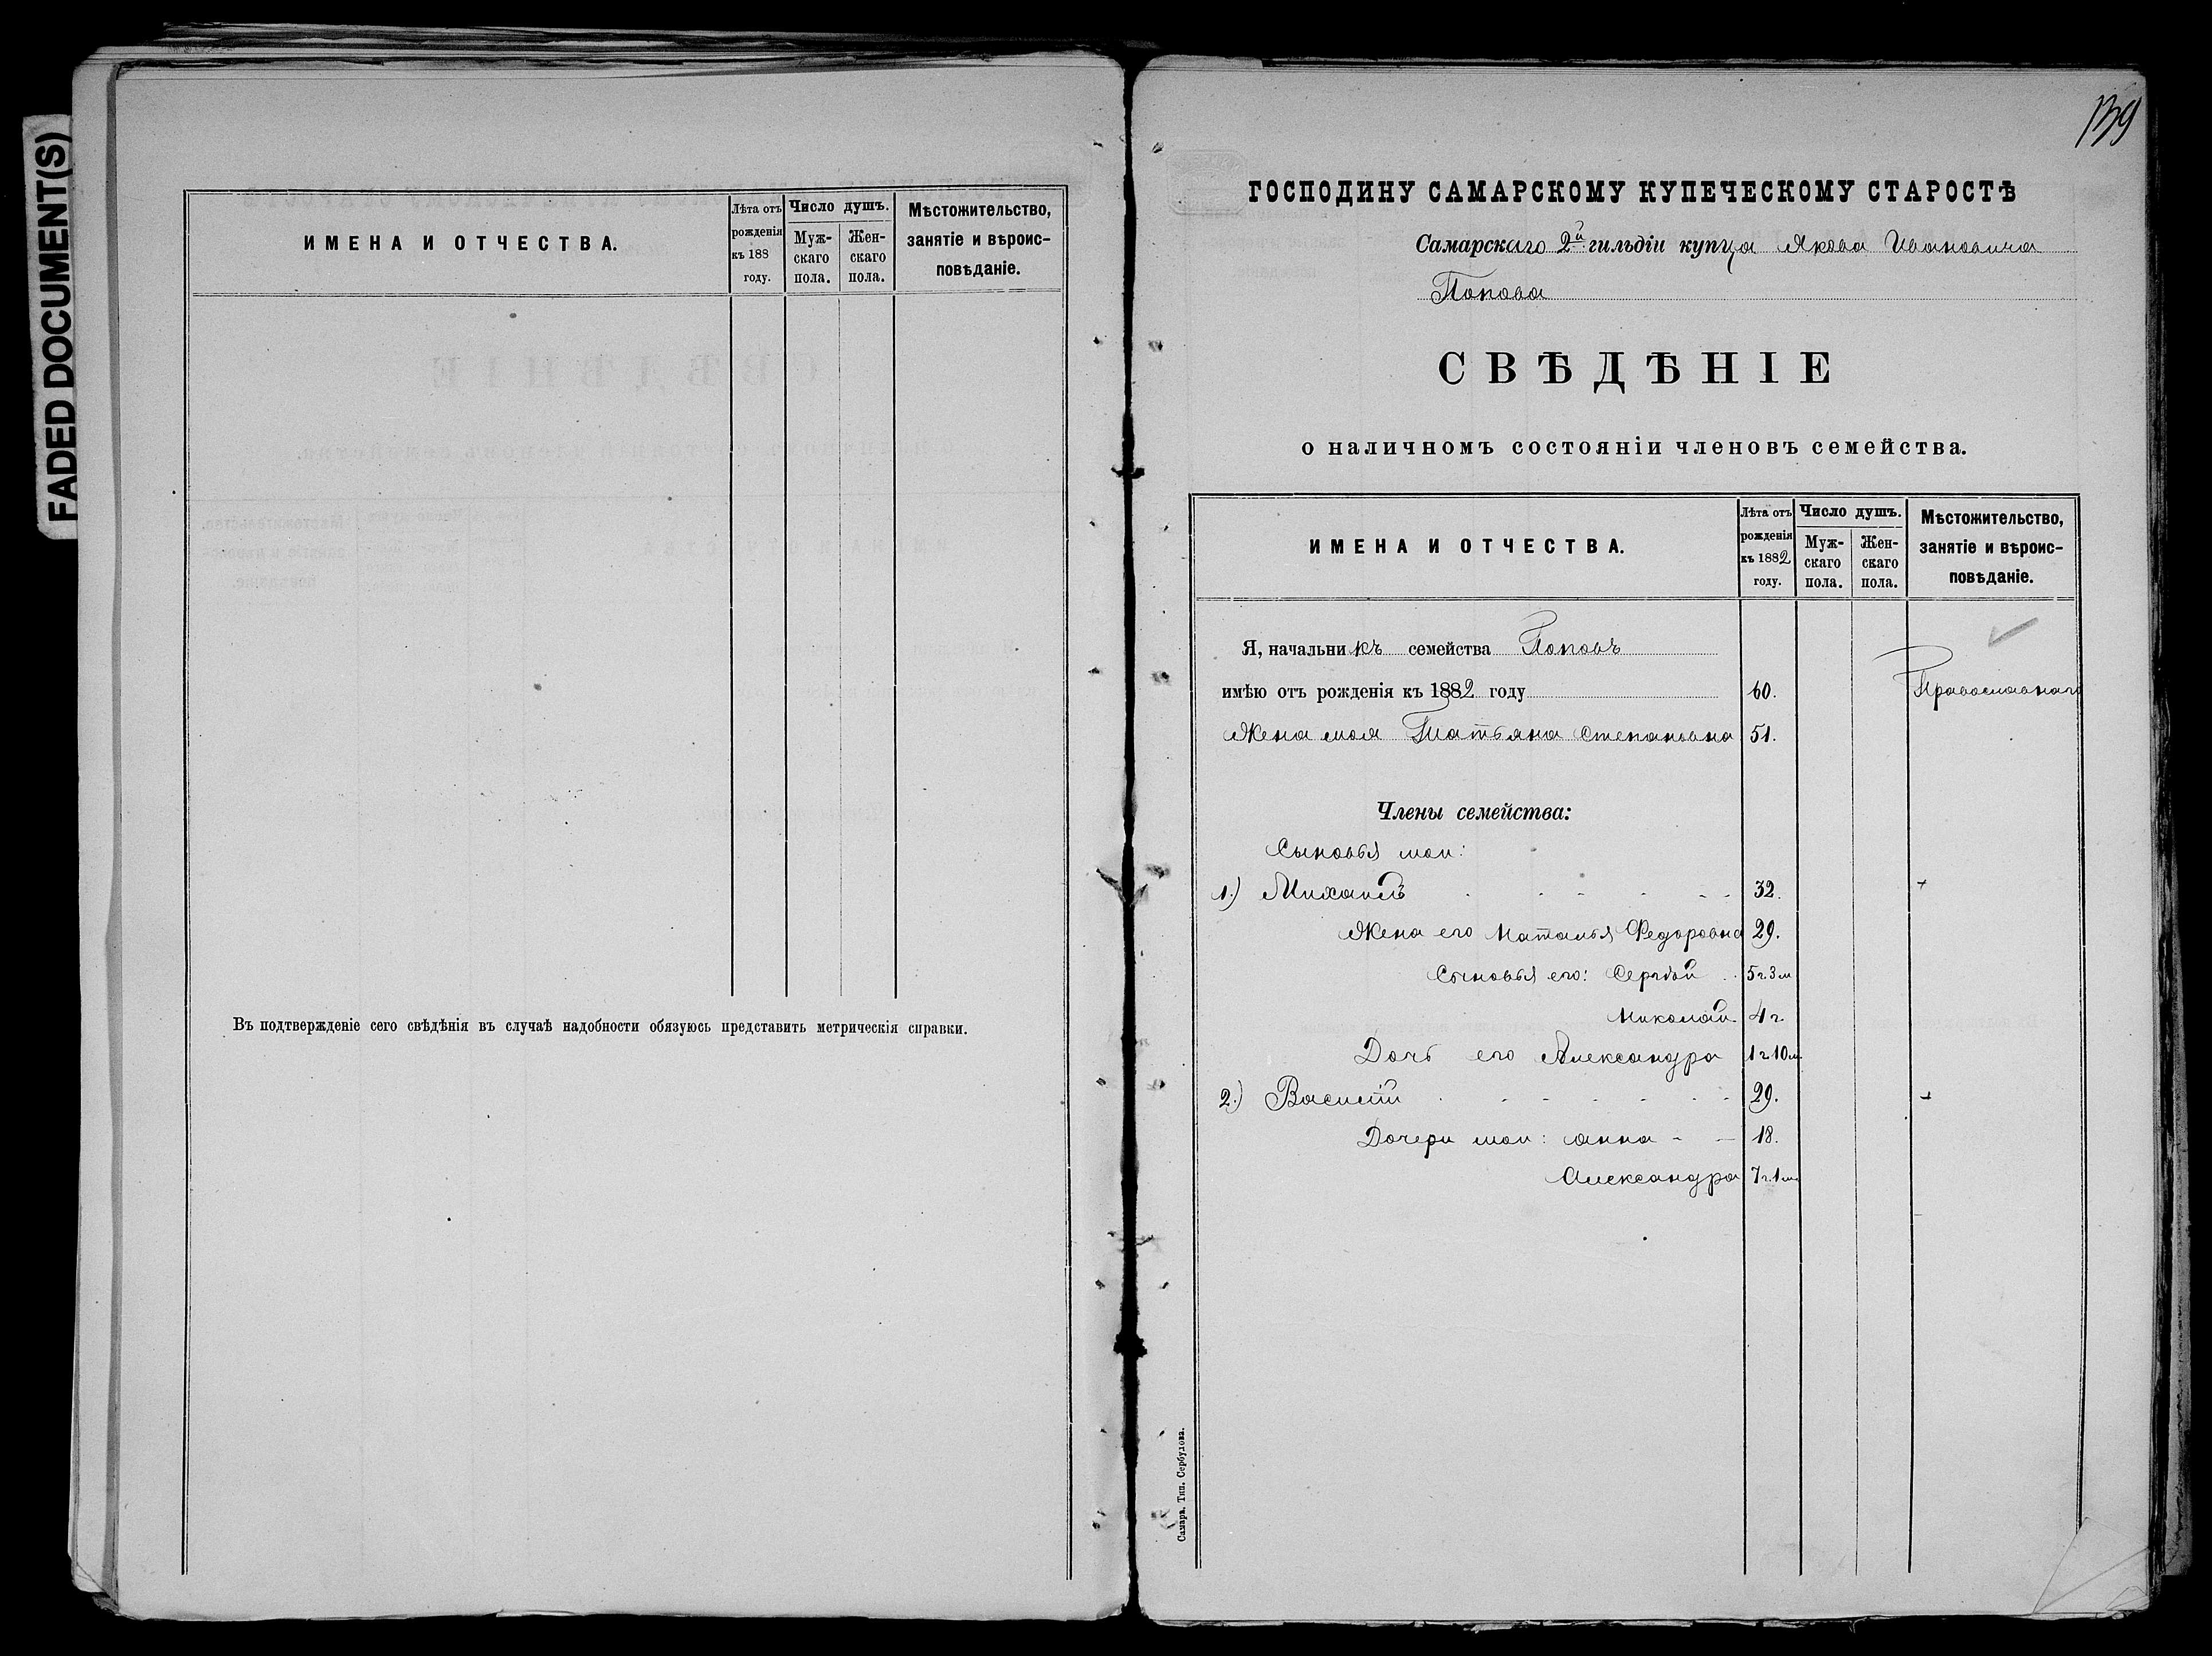 FADED DOCUMENT(S)
ИМЕНА И ОТЧЕСТВА.
Лѣта отъ рожденія къ 188 году.
Число душъ.
Мужскаго пола.
Женскаго пола.
Мѣстожительство, занятіе и вѣроисповѣданіе.
Въ подтвержденіе сего свѣдѣнія въ случаѣ надобности обязуюсь представить метрическія справки.
139
ГОСПОДИНУ САМАРСКОМУ КУПЕЧЕСКОМУ СТАРОСТѢ
Самарскаго 2й гильдіи купца Якова Ивановича
Попова
СВѢДѢНІЕ
о наличномъ состояніи членовъ семейства.
ИМЕНА И ОТЧЕСТВА.
Лѣта отъ рожденія къ 1882 году.
Число душъ.
Мужскаго пола.
Женскаго пола.
Мѣстожительство, занятіе и вѣроисповѣданіе.
Я, начальникъ семейства Поповъ
имѣю отъ рожденія къ 1882 году 60. Православнаго
Жена моя Татьяна Степановна 51.
Члены семейства:
Сыновья мои:
1.) Михаилъ 32.
Жена его Наталья Федоровна 29.
Сыновья его: Сергѣй 5 г. 3 м
Николай 4 г
Дочь его Александра 1 г 10 м.
2.) Василій 29.
Дочери мои: Анна 18.
Александра 7 г. 1 м.
Самара. Тип. Сербулова.